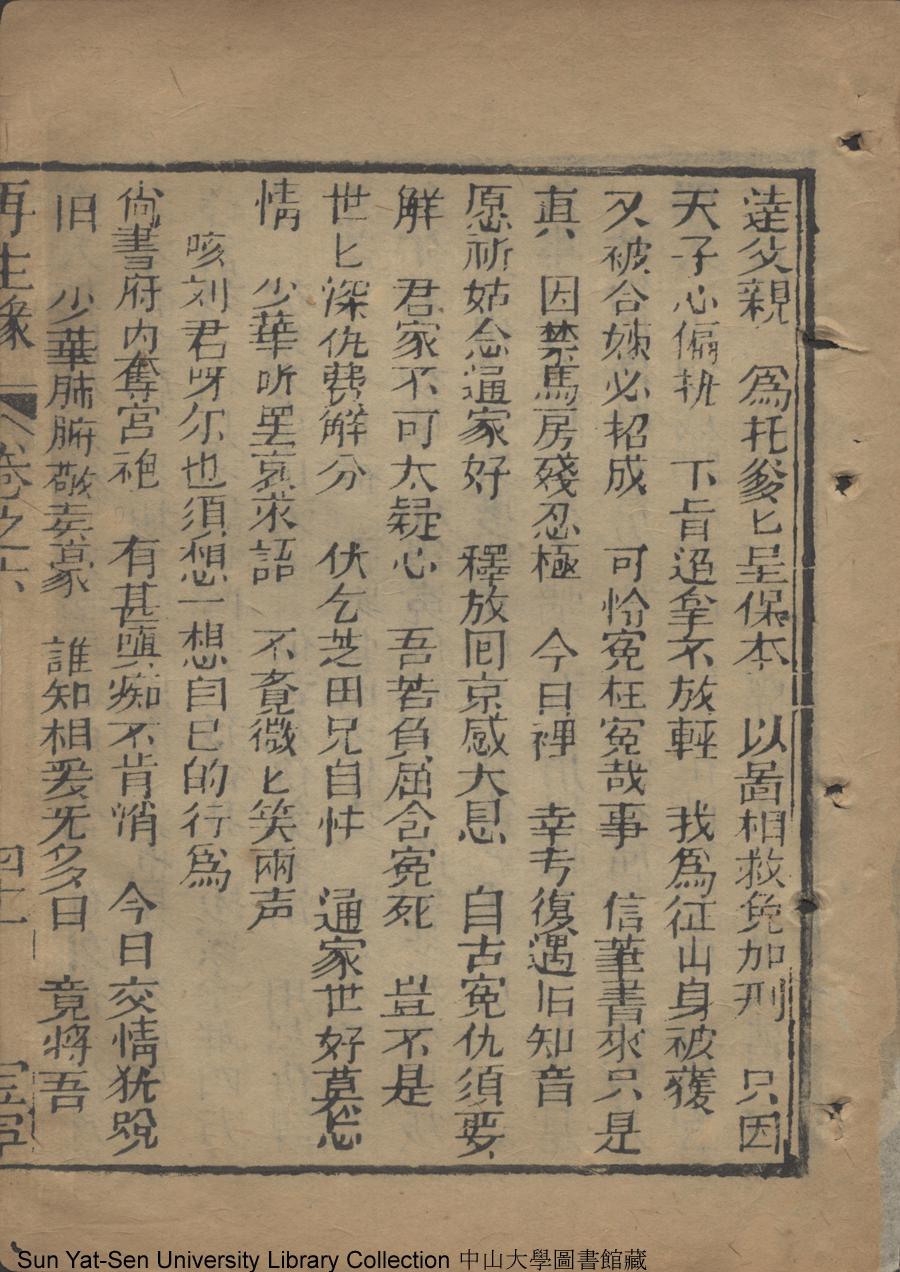 達父親　為托爹匕呈保本　以啚相救免加刑　只因
天子心偏执　下旨迢拿不放輕　我為征山身被獲
又被合嫉必招成　可怜冤枉冤哉事　信筆書來只是
真　因禁馬房殘忍極　今日裡　幸专復遇旧知音
愿祈姑念通家好　釋放囘京感大恩　自古冤仇須要
觧　君家不可太疑心　吾若負屈含冤死　豈不是
世匕深仇费解分　伏乞芝田兄自忖　通家世好莫忘
情　少華听罢哀求語　不覔微匕笑兩声
咳刘君呀尔也須想一想自已的行為
尙書府内奪宮袍　有甚興痴不肯悄　今日交情犹說
旧　少華肺腑敬　誰知相爰旡多日　竟將吾
再生緣　卷之六